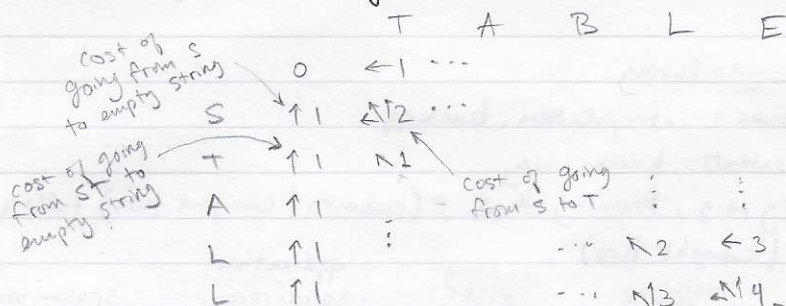 T A B L E
cost of
going from S
to empty string
0 ←1 ...
S ↑1 ↖↑2 ...
cost of going
from ST to
empty string
T ↑1 ↖1
cost of going
from S to T
A ↑1 ⋮ ⋮
L ↑1 ⋮ ... ↖2 ←3
L ↑1 ... ↖↑3 ↖↑4